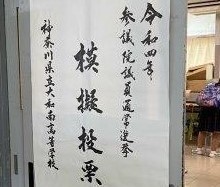 令和四年
参議院議員通常選挙
模擬投票
神奈川県立大和南高等学校